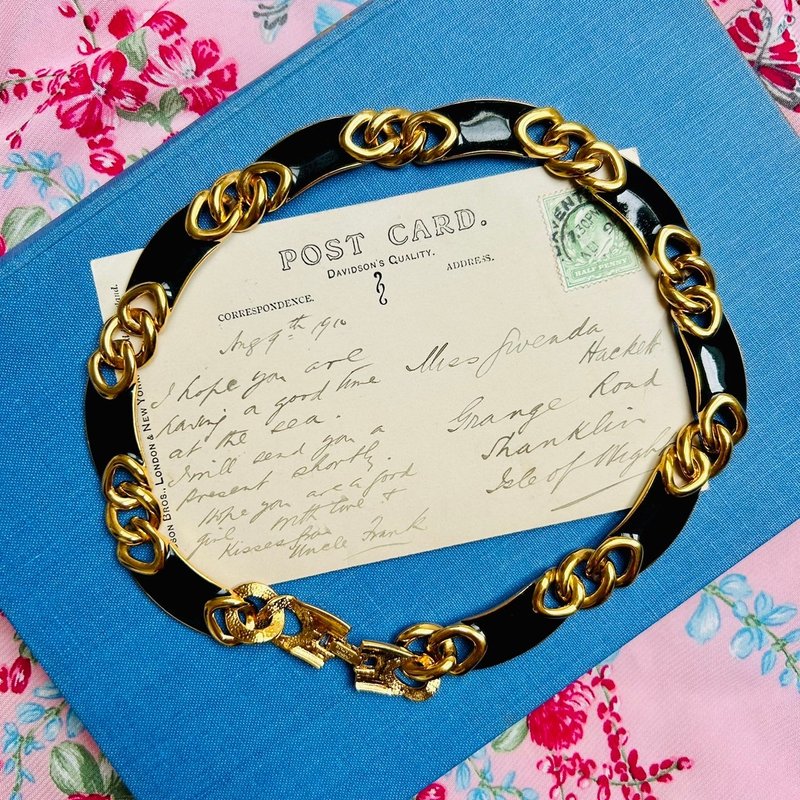 POST CARD.
DAVIDSON'S QUALITY.
CORRESPONDENCE.
ADDRESS.
Aug 9th 1910
I hope you are
having a good time
at the sea.
I will send you a
present shortly.
Hope you are a good
girl with love &
kisses from
Uncle Frank
Miss Gwenda
Hackett
Grange Road
Shanklin
Isle of Wigh
730PM
AU 9
HALF PENNY
SON BROS., LONDON & NEW YORK